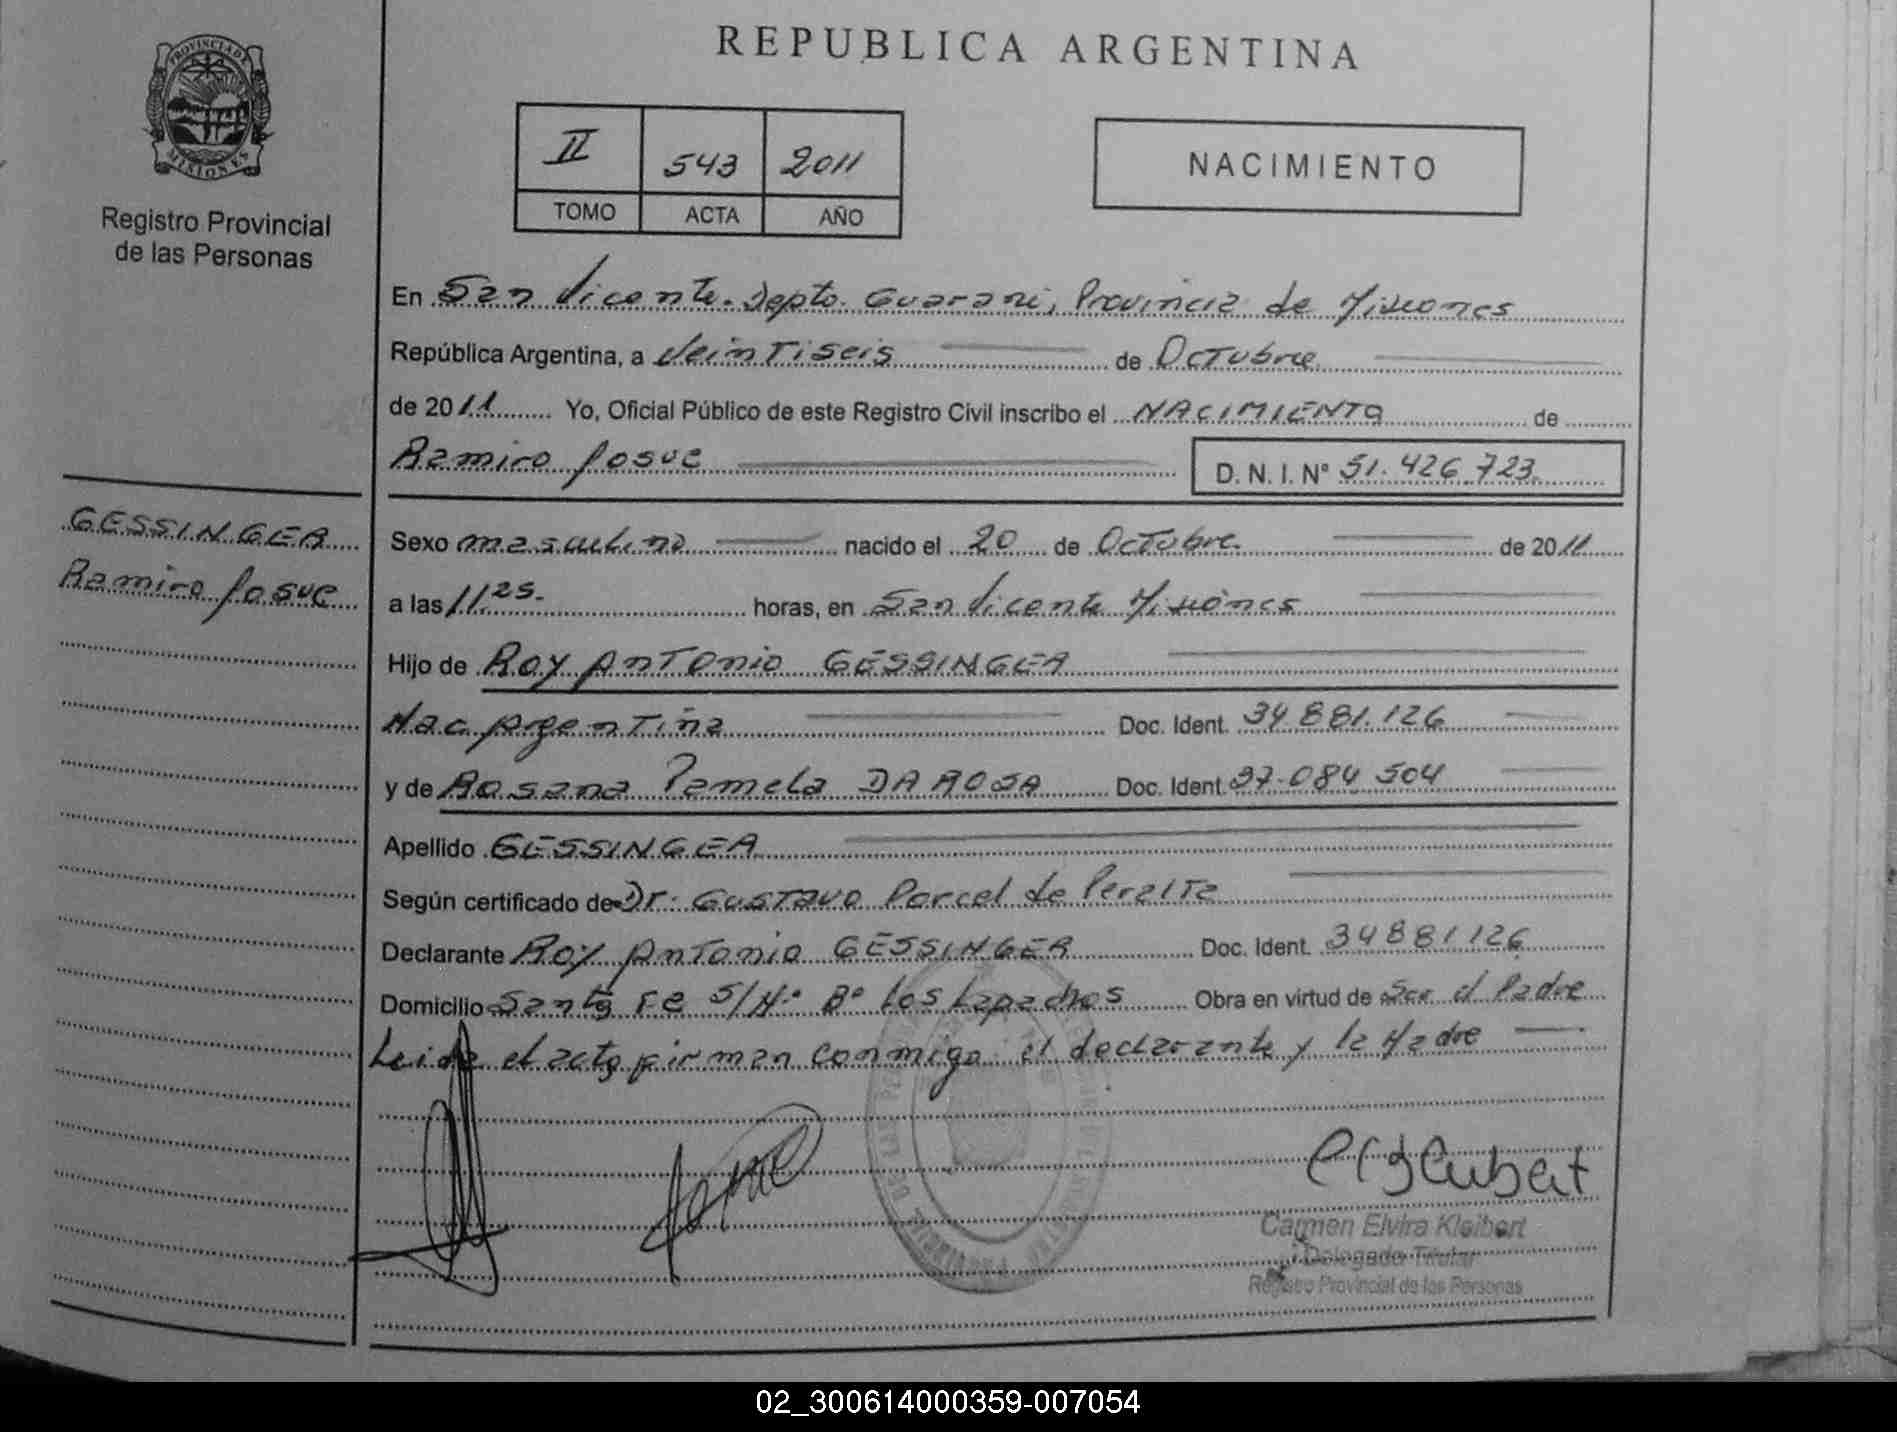 PROVINCIA DE
MISIONES
Registro Provincial
de las Personas
REPUBLICA ARGENTINA
II 543 2011
TOMO ACTA AÑO
NACIMIENTO
En San Vicente. Depto. Guarani, Provincia de Misiones
República Argentina, a Veintiseis de Octubre
de 2011 Yo, Oficial Público de este Registro Civil inscribo el NACIMIENTO de
Ramiro Josue D. N. I. N° 51.426.723
GESSINGER
Ramiro Josue
Sexo masculino nacido el 20 de Octubre de 2011
a las 11 25 horas, en San Vicente Misiones
Hijo de Roy Antonio GESSINGER
Nac. Argentina Doc. Ident. 34 881.126
y de Rosana Pamela DA ROSA Doc. Ident. 37.084 504
Apellido GESSINGER
Según certificado de Dr. Gustavo Porcel de Peralta
Declarante Roy Antonio GESSINGER Doc. Ident. 34 881126
Domicilio Santa Fe S/N° B° Los Lapachos Obra en virtud de Ser el Padre
Leida el acta firman conmigo el declarante y la Madre
Carmen Elvira Kleibert
Delegado Titular
Registro Provincial de las Personas
02_300614000359-007054